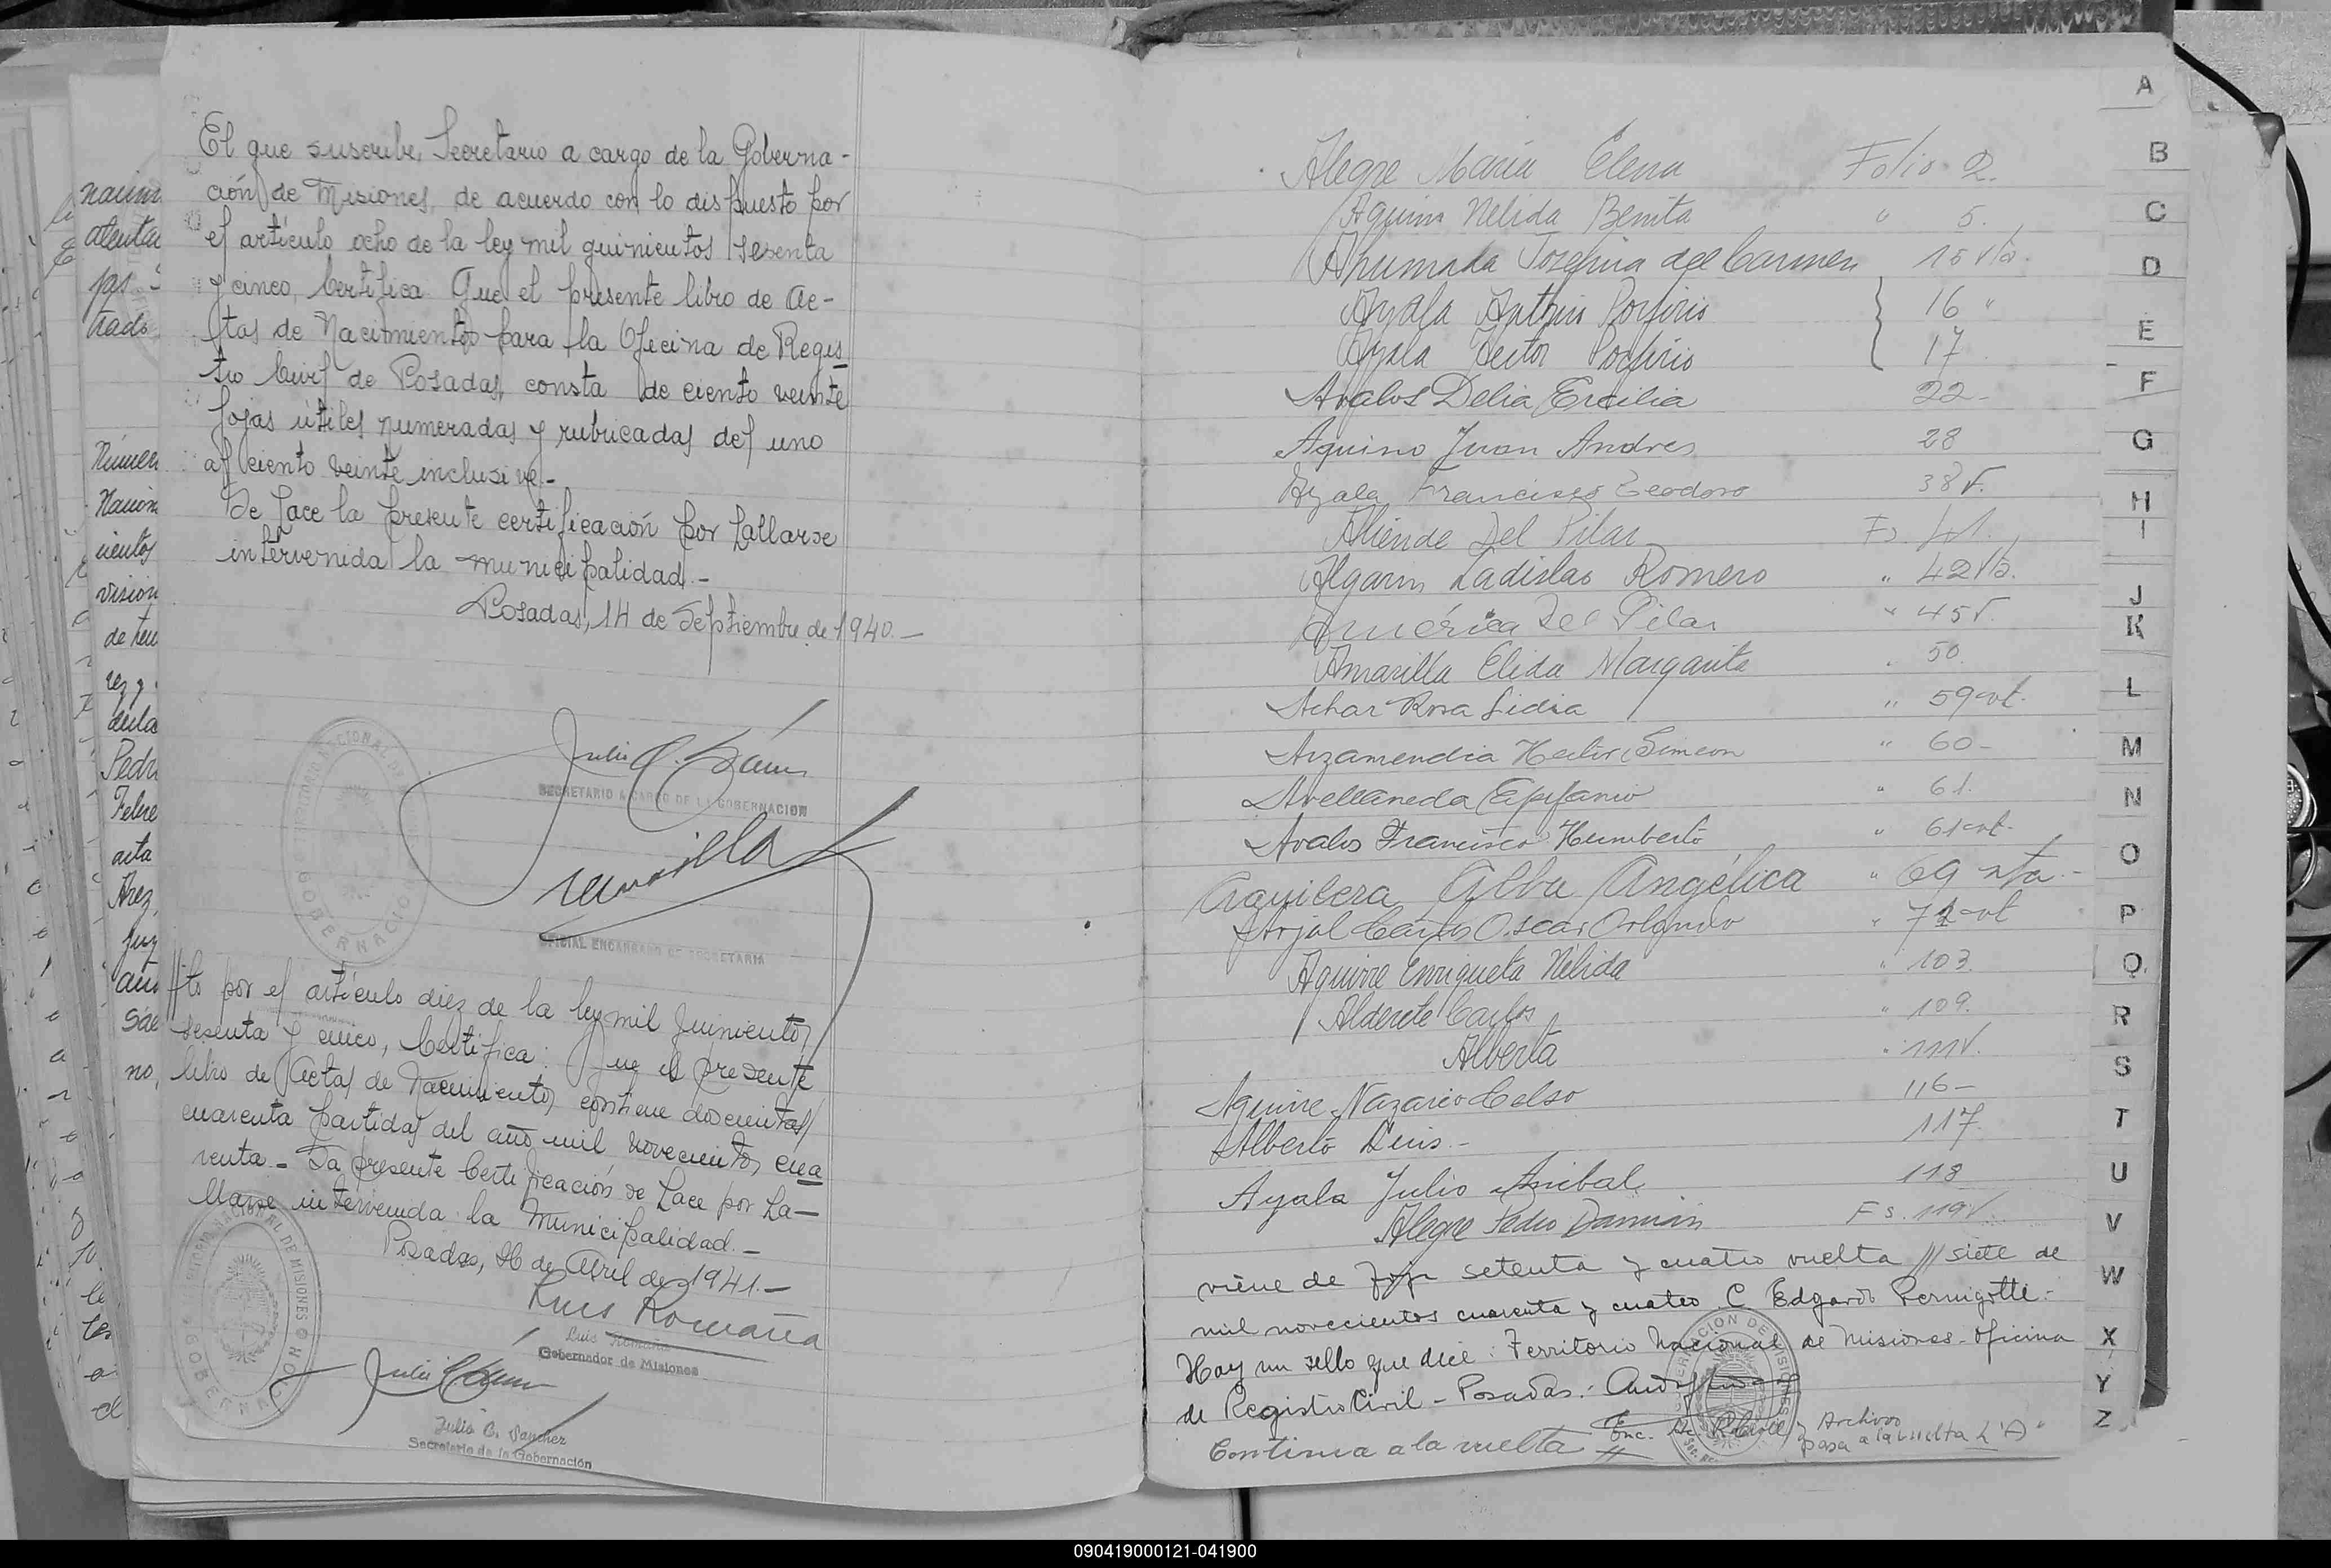 El que suscribe, Secretario a cargo de la Goberna-
ción de Misiones, de acuerdo con lo dispuesto por
el artículo ocho de la ley mil quinientos sesenta
y cinco, Certifica Que el presente libro de Ac-
tas de Nacimientos para la Oficina de Regis
tro Civil de Posadas, consta de ciento veinte
fojas útiles numeradas y rubricadas del uno
al ciento veinte inclusive.-
Se hace la presente certificación por hallarse
intervenida la municipalidad.-
Posadas, 14 de Septiembre de 1940.-
SECRETARIO A CARGO DE LA GOBERNACION
OFICIAL ENCARGADO DE SECRETARIA
//to por el artículo diez de la ley mil quinientos
sesenta y cinco, Certifica: Que el presente
libro de Actas de Nacimientos contiene doscientas
cuarenta partidas del año mil novecientos cua
renta.- La presente Certificación se hace por ha-
llarse intervenida la Municipalidad.-
Posadas, de Abril de 1941.-
Luis Romaña
Luis Romaña
Gobernador de Misiones
Julio C. Sanchez
Secretario de la Gobernación
Alegre María Elena Folio 2.
Aquino Nélida Benita " 5.
Ahumada Josefina del Carmen 15 vta.
Ayala Antonio Porfirio 16 "
Ayala Hector Porfirio 17
Avalos Delia Ercilia 22-
Aquino Juan Andres 28
Ayala Francisco Teodoro 38 v.
Aliende Del Pilar Fs. 41.
Algarin Ladislao Romero " 42 vta.
América Del Pilar " 45 v.
Amarilla Elida Margarita " 50.
Achar Rosa Lidia " 59 vt.
Arzamendia Hector Simeon " 60-
Avellaneda Epifanio " 61.
Avalos Francisco Humberto " 61 vt.
Aguilera Alba Angélica " 69 vta.-
Arjol Carlos Oscar Orlando " 71 vt
Aguirre Enriqueta Nélida " 103.
Alderete Carlos " 109.
Alberta " 111 v.
Aguirre Nazario Celso 116-
Alberto Luis.- 117.
Ayala Julio Anibal 118
Alegre Pedro Damián Fs. 119 v.
viene de foja setenta y cuatro vuelta // siete de
mil novecientos cuarenta y cuatro. C Edgardo Pernigotti.-
Hay un sello que dice: Territorio Nacional de Misiones - Oficina
de Registro Civil - Posadas.-
Continua a la vuelta Archivo
pasa a la vuelta L "A"
A
B
C
D
E
F
G
H
I
J
K
L
M
N
O
P
Q
R
S
T
U
V
W
X
Y
Z
090419000121-041900